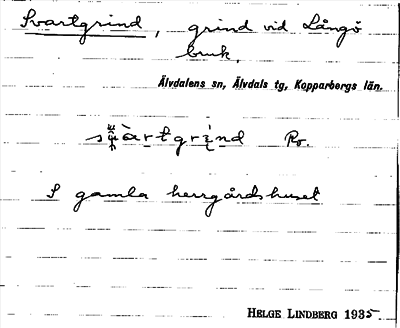 Svartgrind, grind vid Långö
bruk,
Älvdalens sn, Älvdals tg, Kopparbergs län.
Ro.
S gamla herrgårdshuset
HELGE LINDBERG 1935